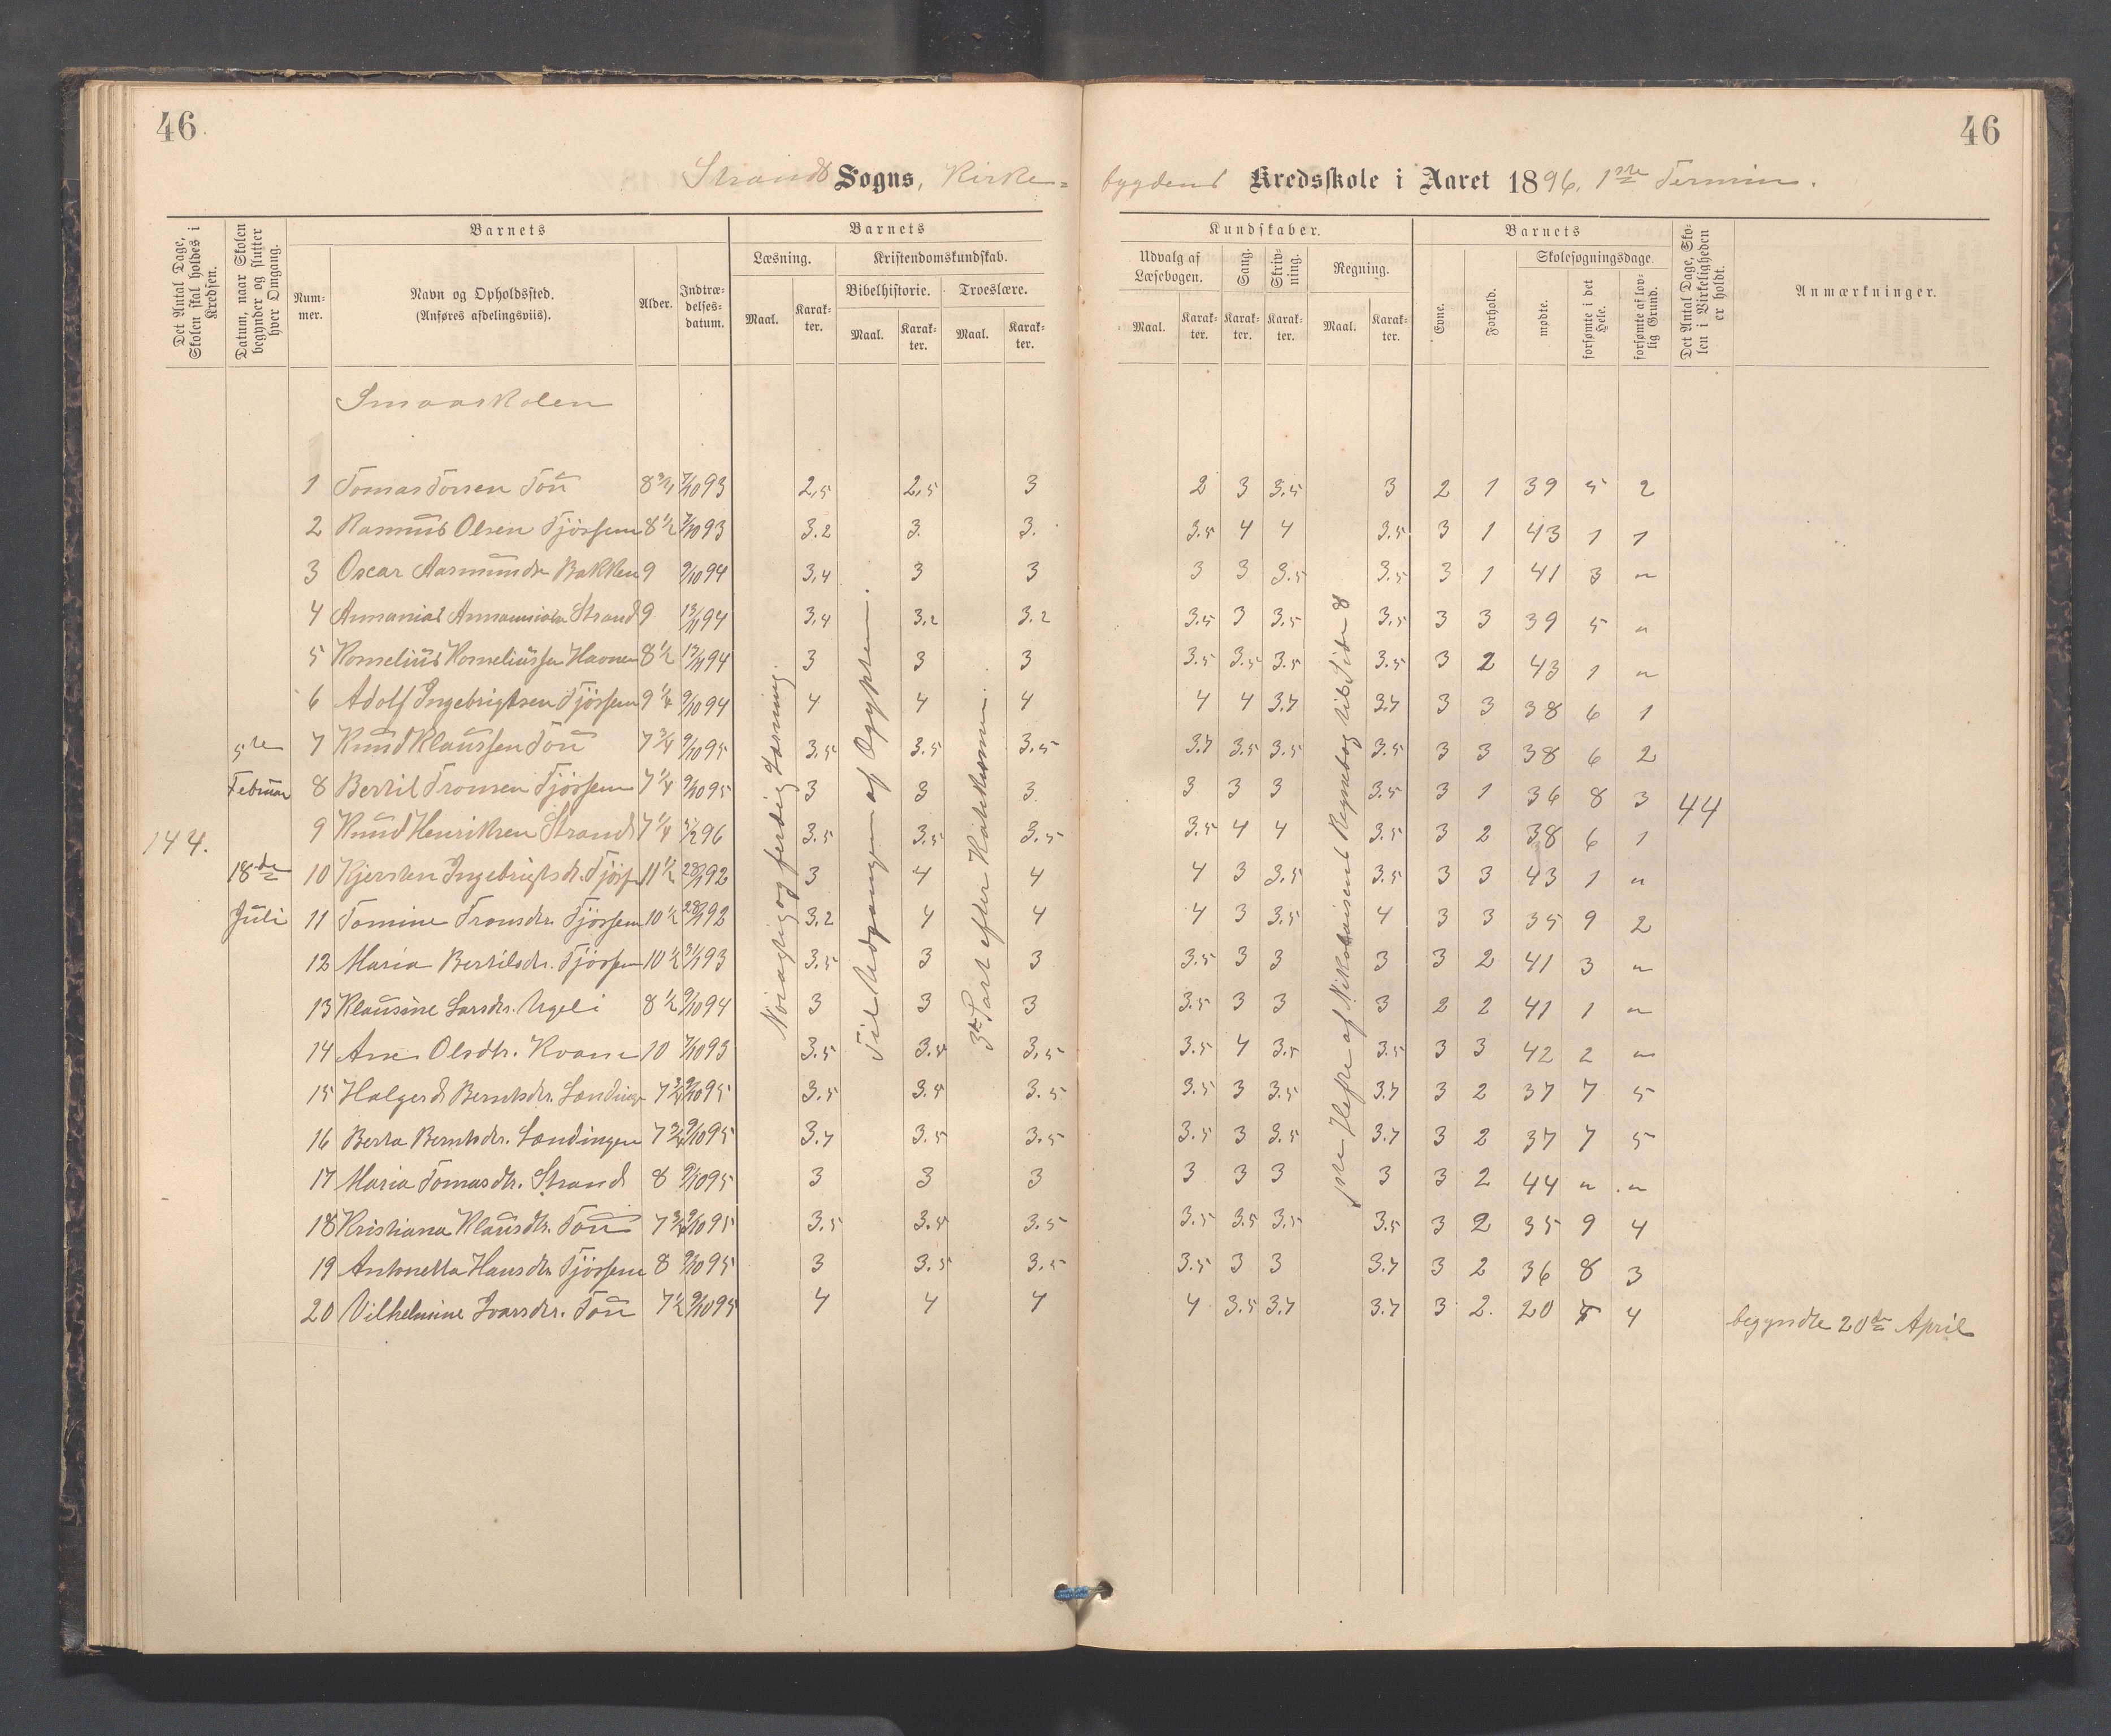 46.
46
Strands Sogns, Kirke=
bygdens Kredsskole i Aaret 1896, 1ste Termin.
Det Antal Dage, Skolen skal holdes i Kredsen.
Datum, naar Skolen begynder og slutter hver Omgang.
Barnets
Nummer.
Navn og Opholdssted.
(Anføres afdelingsviis).
Alder.
Indtrædelses-datum.
Barnets
Læsning.
Maal.
Karakter.
Kristendomskundskab.
Bibelhistorie.
Maal.
Karakter.
Troeslære.
Maal.
Karakter.
Kundskaber.
Udvalg af Læsebogen.
Maal.
Karakter.
Sang.
Karakter.
Skrivning.
Karakter.
Regning.
Maal.
Karakter.
Barnets
Evne.
Forhold.
Skolesøgningsdage.
mødte.
forsømte i det Hele.
forsømte af lovlig Grund.
Det Antal Dage, Skolen i Virkeligheden er holdt.
Anmærkninger.
Smaaskolen
144.
5te
Februar
18de
Juli
Nøiagtig og ferdig Læsning.
Til Udgangen af Ægypten.
3die Part efter Katekismen.
første Hefte af Nikolaisens Regnebog til Side 8
44
1 Tomas Torsen Tou 8 3/4 7/10 93 2,5 2,5 3 2 3 3.5 3 2 1 39 5 2
2 Rasmus Olsen Tjössem 8 1/2 7/10 93 3.2 3. 3. 3.5 4 4 3.5 3 1 43 1 1
3 Oscar Aasmunds Bakken 9 9/10 94 3,4 3 3 3 3 3.5 3.5 3 1 41 3 "
4 Annanias Annanias Strand 9 13/11 94 3,4 3,2 3.2 3.5 3 3.5 3.5 3 3 39 5 "
5 Kornelius Korneliussen Havnen 8 1/2 13/11 94 3 3 3 3.5 3.5 3.5 3.5 3 2 43 1 "
6 Adolf Ingebrigtsen Tjössem 9 1/4 9/10 94 4 4 4 4 4 3.7 3.7 3 3 38 6 1
7 Knud Klaussen Tou 7 3/4 9/10 95 3,5 3.5 3,5 3.7 3.5 3.5 3.5 3 3 38 6 2
8 Bertil Tronsen Tjössem 7 1/4 9/10 95 3 3 3 3 3 3 3.5 3 1 36 8 3
9 Knud Henriksen Strand 7 1/4 5/2 96 3.5 3.5 3.5 3.5 4 4 3.5 3 2 38 6 1
10 Kjersten Ingebrigtsdt. Tjöss 11 1/2 92 3 4 4 4 3 3.5 3.5 3 3 43 1 "
11 Tomine Tronsdtr. Tjössem 10 1/2 92 3,2 4 4 4 3 3.5 4 3 3 35 9 2
12 Maria Bertilsdt. Tjössem 10 1/2 93 3.5 3 3 3.5 3 3 3 3 2 41 3 "
13 Klausine Larsdtr. Ugeli 8 1/2 9/10 94 3 3 3 3.5 3 3 3 2 2 41 1 "
14 Ane Olsdtr. Kvame 10 7/10 93 3.5 3.5 3.5 3.5 4 3.5 3.5 3 3 42 2 "
15 Holgerd Berntsdtr. Lændingen 7 3/4 9/10 95 3.5 3.5 3.5 3.5 3 3.5 3.7 3 2 37 7 5
16 Berta Berntsdtr. Lændingen 7 3/4 9/10 95 3.7 3.5 3.5 3.5 3 3.5 3.7 3 2 37 7 5
17 Maria Tomasdtr. Strand 8 9/10 95 3 3 3 3 3 3 3 3 2 44 " "
18 Kristiana Klausdtr. Tou 7 3/4 9/10 95 3.5 3.5 3.5 3.5 3.5 3.5 3.5 3 2 35 9 4
19 Antonetta Hansdtr Tjössem 8 9/10 95 3 3.5 3.5 3.5 3 3 3.7 3 2 36 8 3
20 Vilhelmine Ivarsdtr. Tou 7 1/2 9/10 95 4 4 4 4 3.5 3.7 3.7 3 2. 20 4 begyndte 20de April